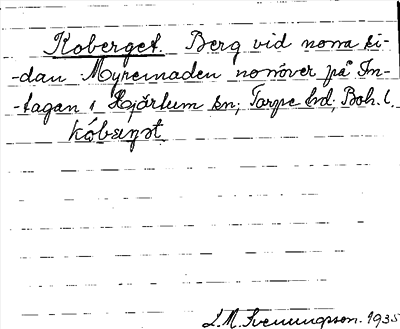 Koberget. Berg vid norra si-
-dan Myrernaden norröver på In-
-tagan i Hjärtum sn, Torpe hd, Boh. l.
kóbærjət
L. M. Svenungsson. 1935